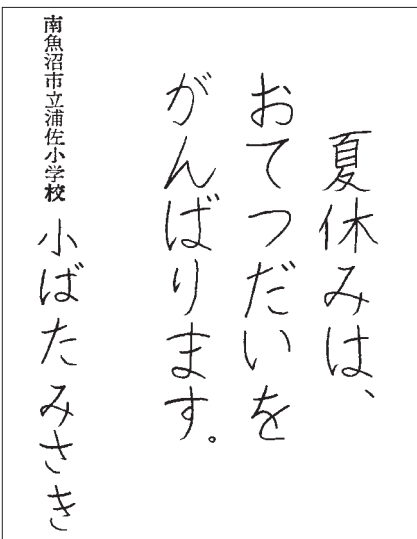 夏休みは、
おてつだいを
がんばります。
南魚沼市立浦佐小学校 小ばた みさき